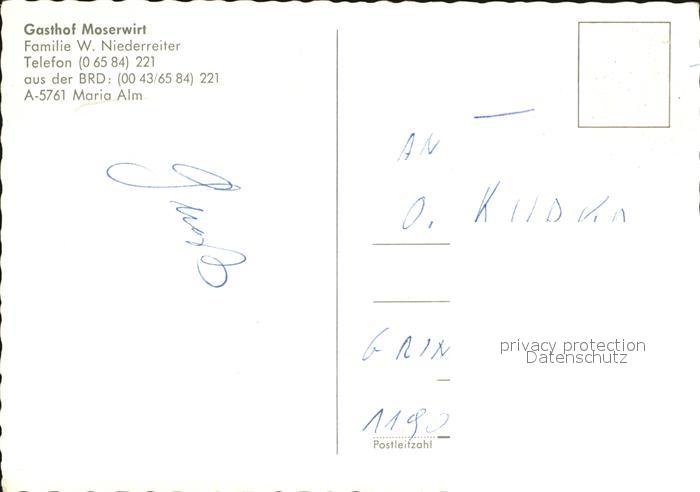 Gasthof Moserwirt
Familie W. Niederreiter
Telefon (0 65 84) 221
aus der BRD: (00 43/65 84) 221
A-5761 Maria Alm
AN
O.
GRIN
1190
Postleitzahl
privacy protection
Datenschutz